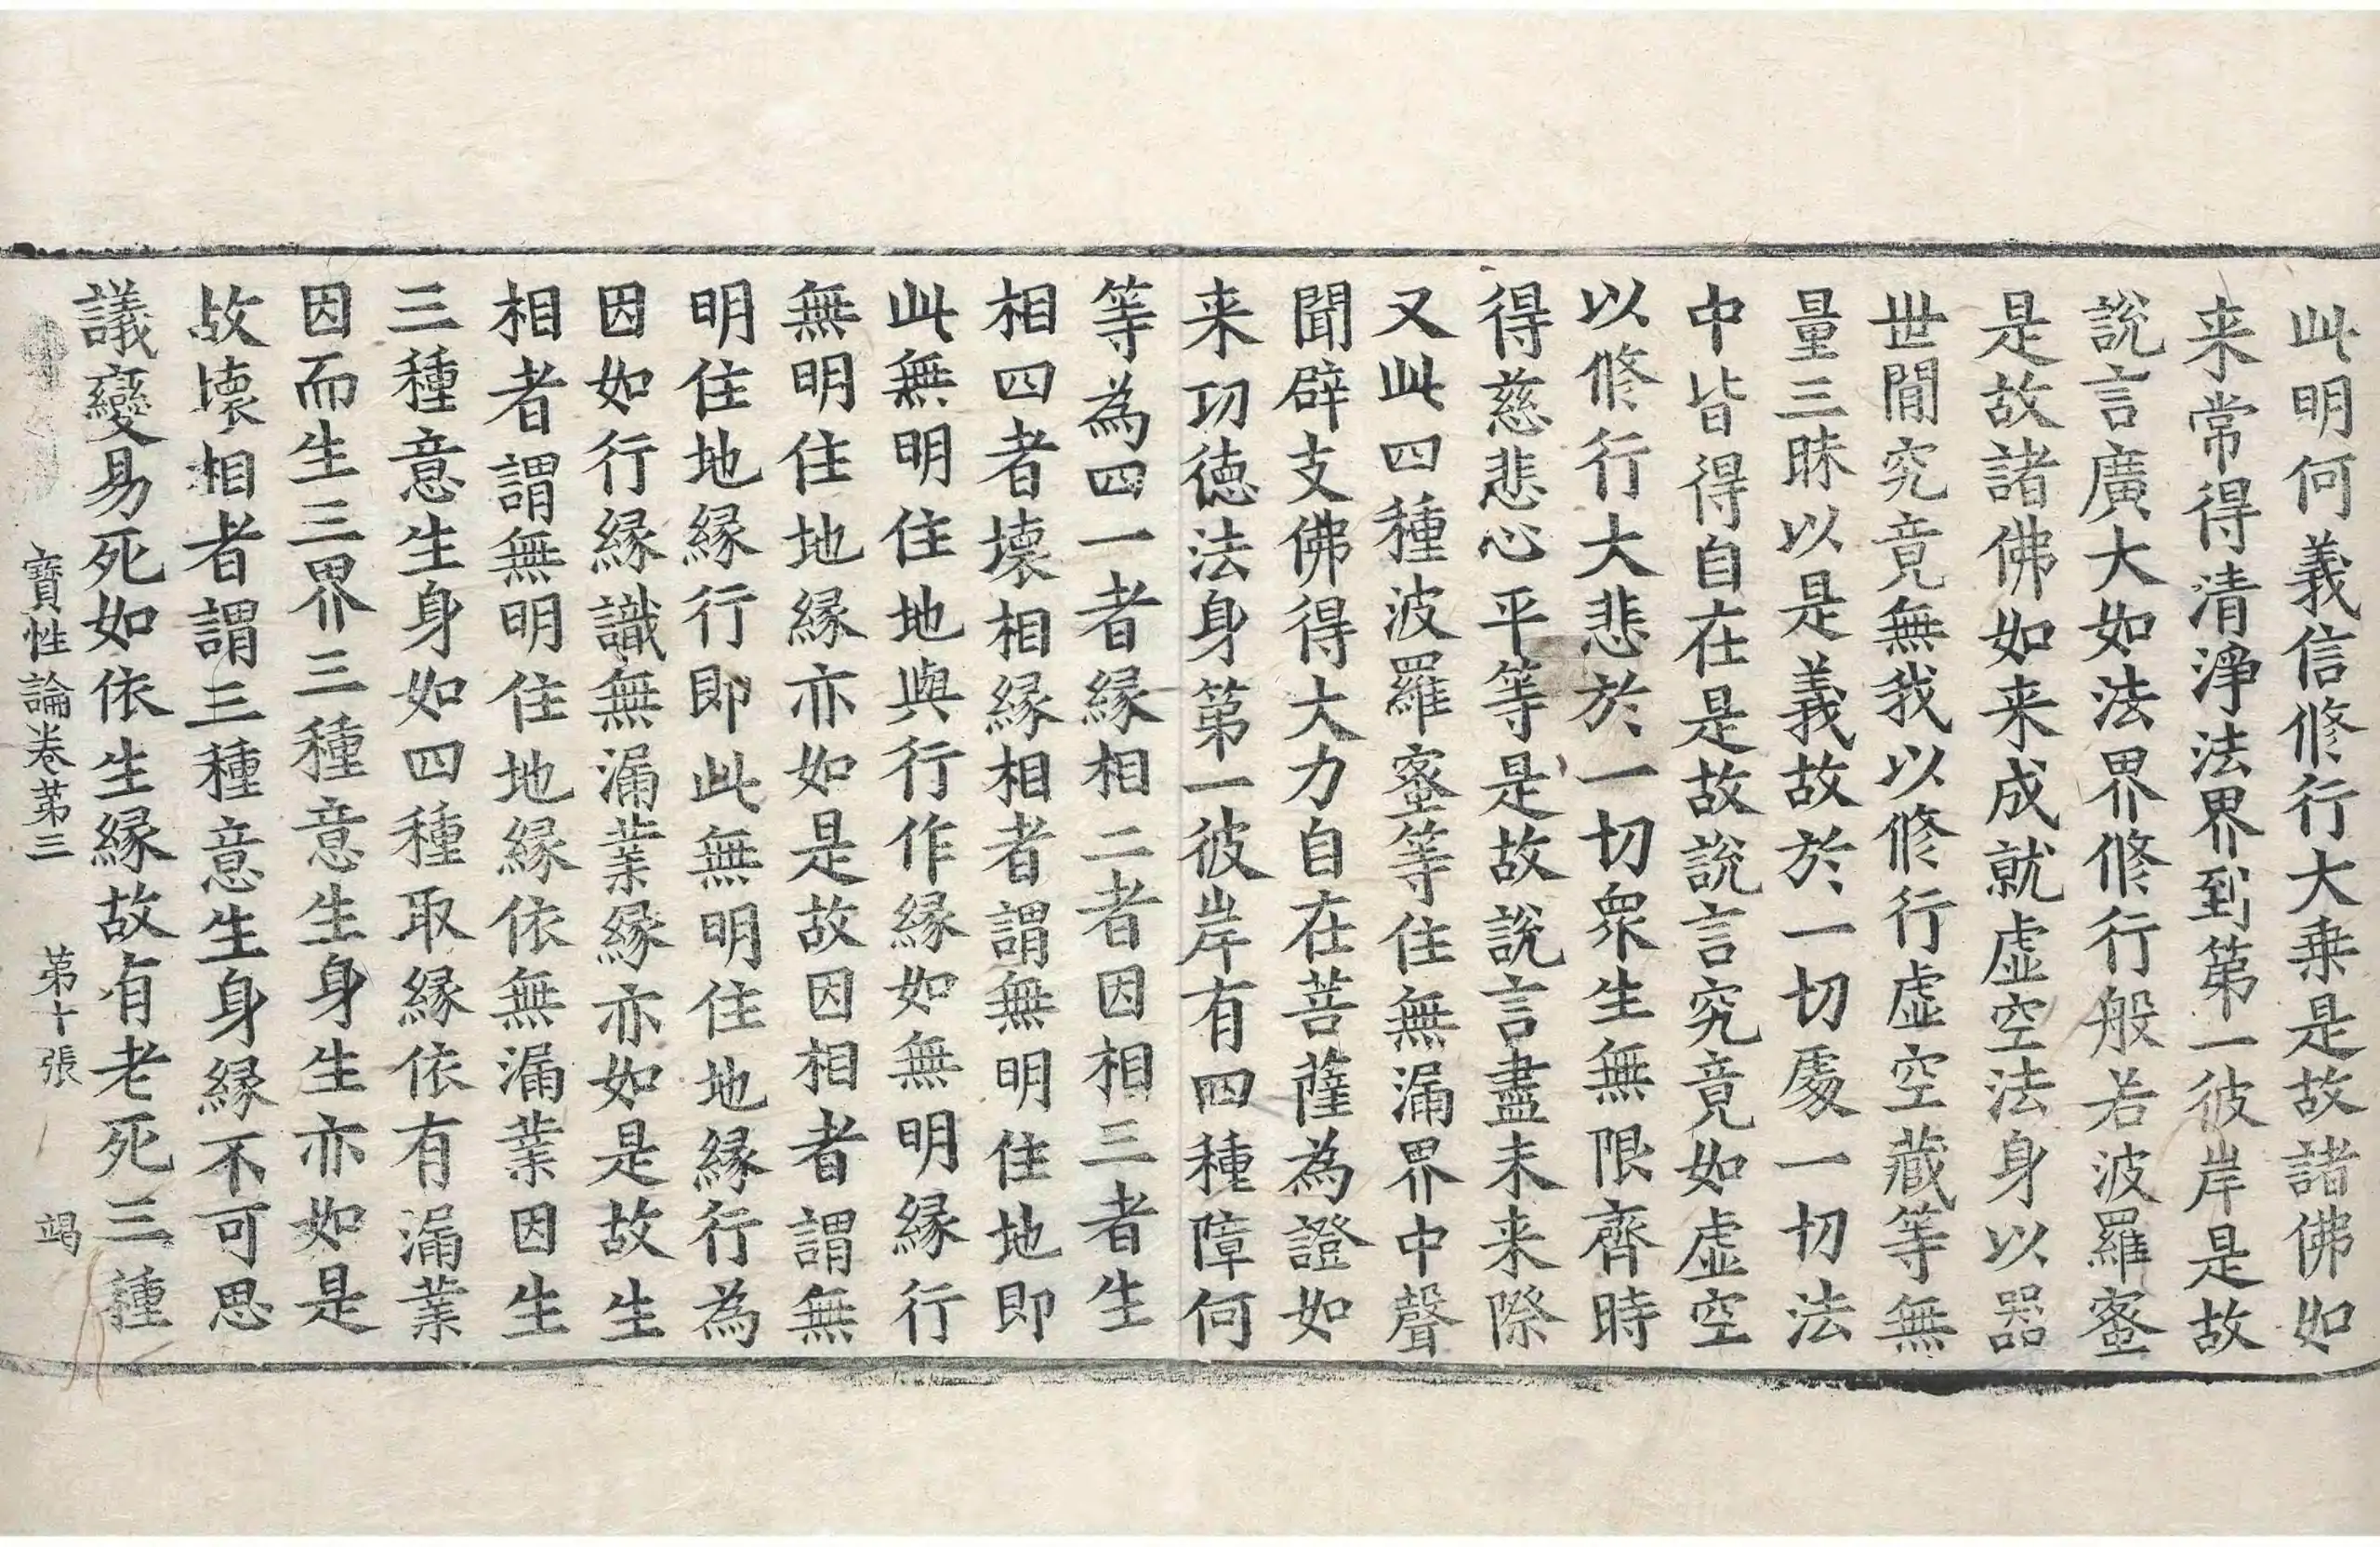 此明何義信修行大乗是故諸佛如
来常得清淨法界到第一彼岸是故
說言廣大如法界修行般若波羅蜜
是故諸佛如来成就虛空法身以器
世間究竟無我以修行虛空藏等無
量三昧以是義故於一切處一切法
中皆得自在是故說言究竟如虛空
以修行大悲於一切衆生無限齊時
得慈悲心平等是故說言盡未来際
又此四種波羅蜜等住無漏界中聲
聞辟支佛得大力自在菩薩為證如
来功德法身第一彼岸有四種障何
等為四一者緣相二者因相三者生
相四者壞相緣相者謂無明住地即
此無明住地與行作緣如無明緣行
無明住地緣亦如是故因相者謂無
明住地緣行即此無明住地緣行為
因如行緣識無漏業緣亦如是故生
相者謂無明住地緣依無漏業因生
三種意生身如四種取緣依有漏業
因而生三界三種意生身生亦如是
故壞相者謂三種意生身緣不可思
議變易死如依生緣故有老死三種
寶性論卷第三 第十張 竭